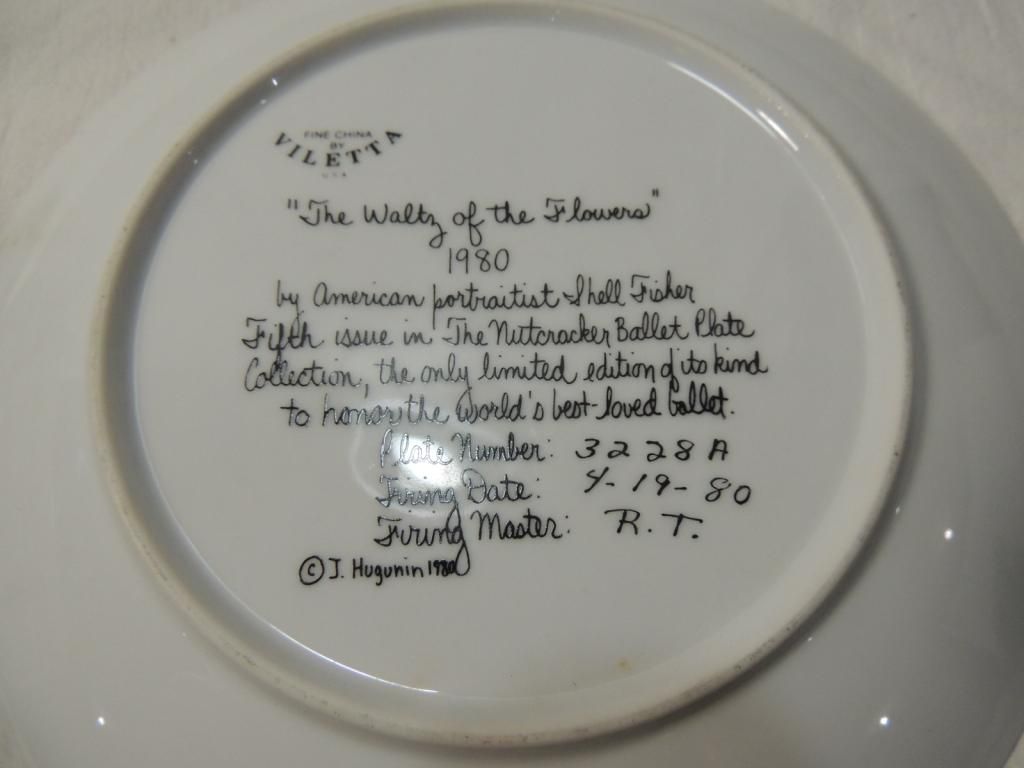 FINE CHINA
BY
VILETTA
U.S.A.
"The Waltz of the Flowers"
1980
by American portraitist Shell Fisher
Fifth issue in The Nutcracker Ballet Plate
Collection, the only limited edition of its kind
to honor the world's best-loved ballet.
Plate Number: 3228A
Firing Date: 4-19-80
Firing Master: R.T.
© J. Hugunin 1980